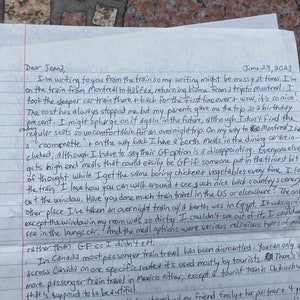 Dear Jenn, June 29, 2023
I'm writing to you from the train so my writing might be messy at times. I'm
on the train from Montreal to Halifax, returning home from a trip to Montreal. I
took the sleeper car train there + back for the first time ever and it's so nice!
The cost has always stopped me but my parents gave me the trip as a birthday
present. I might splurge on it again in the future, although I didn't find the
regular seats so uncomfortable for an overnight trip. On my way to Montreal I
"roomette" + on the way back I have a berth. Meals in the dining car
cluded, although I have to say their GF option is a disappointment. Everyone else
gets high end meals that could easily be GF if someone put in the tiniest bit
of thought while I get the same boring chicken + vegetables every time. I
the train. I love how you can walk around + see such nice back country scenery
out the window. Have you done much train travel in the US or elsewhere? The
other place I've taken an overnight train w/ a berth was in Egypt. It was
except the window in my room was so dirty I couldn't see out of it,
see in the lounge car. And the meal options were various religious types
rather than GF so I didn't eat.
In Canada most passenger train travel has been dismantled. You can only
across Canada on one specific route + it's used mostly by tourists. There's
more passenger train travel in Mexico either, except a tourist train in Chihuahua
that's supposed to be beautiful.
my friend + her partner +